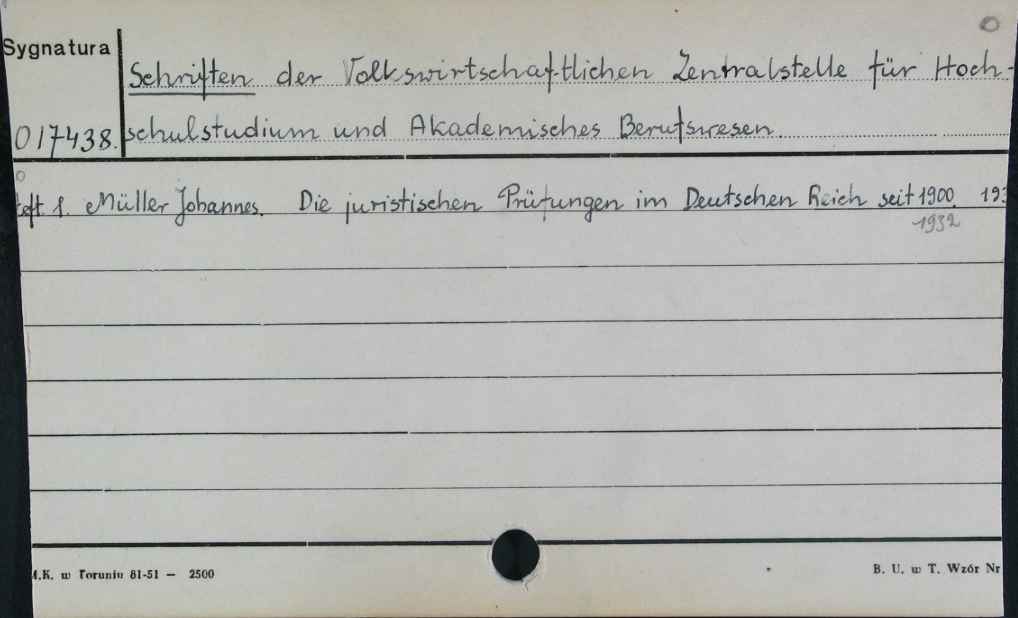 Sygnatura
Schriften der Volkswirtschaftlichen Zentralstelle für Hoch-
017438. schulstudium und Akademisches Berufswesen
eft 1. Müller Johannes. Die juristischen Prüfungen im Deutschen Reich seit 1900. 193
1932
.K. w Toruniu 81-51 — 2500
B. U. w T. Wzór Nr